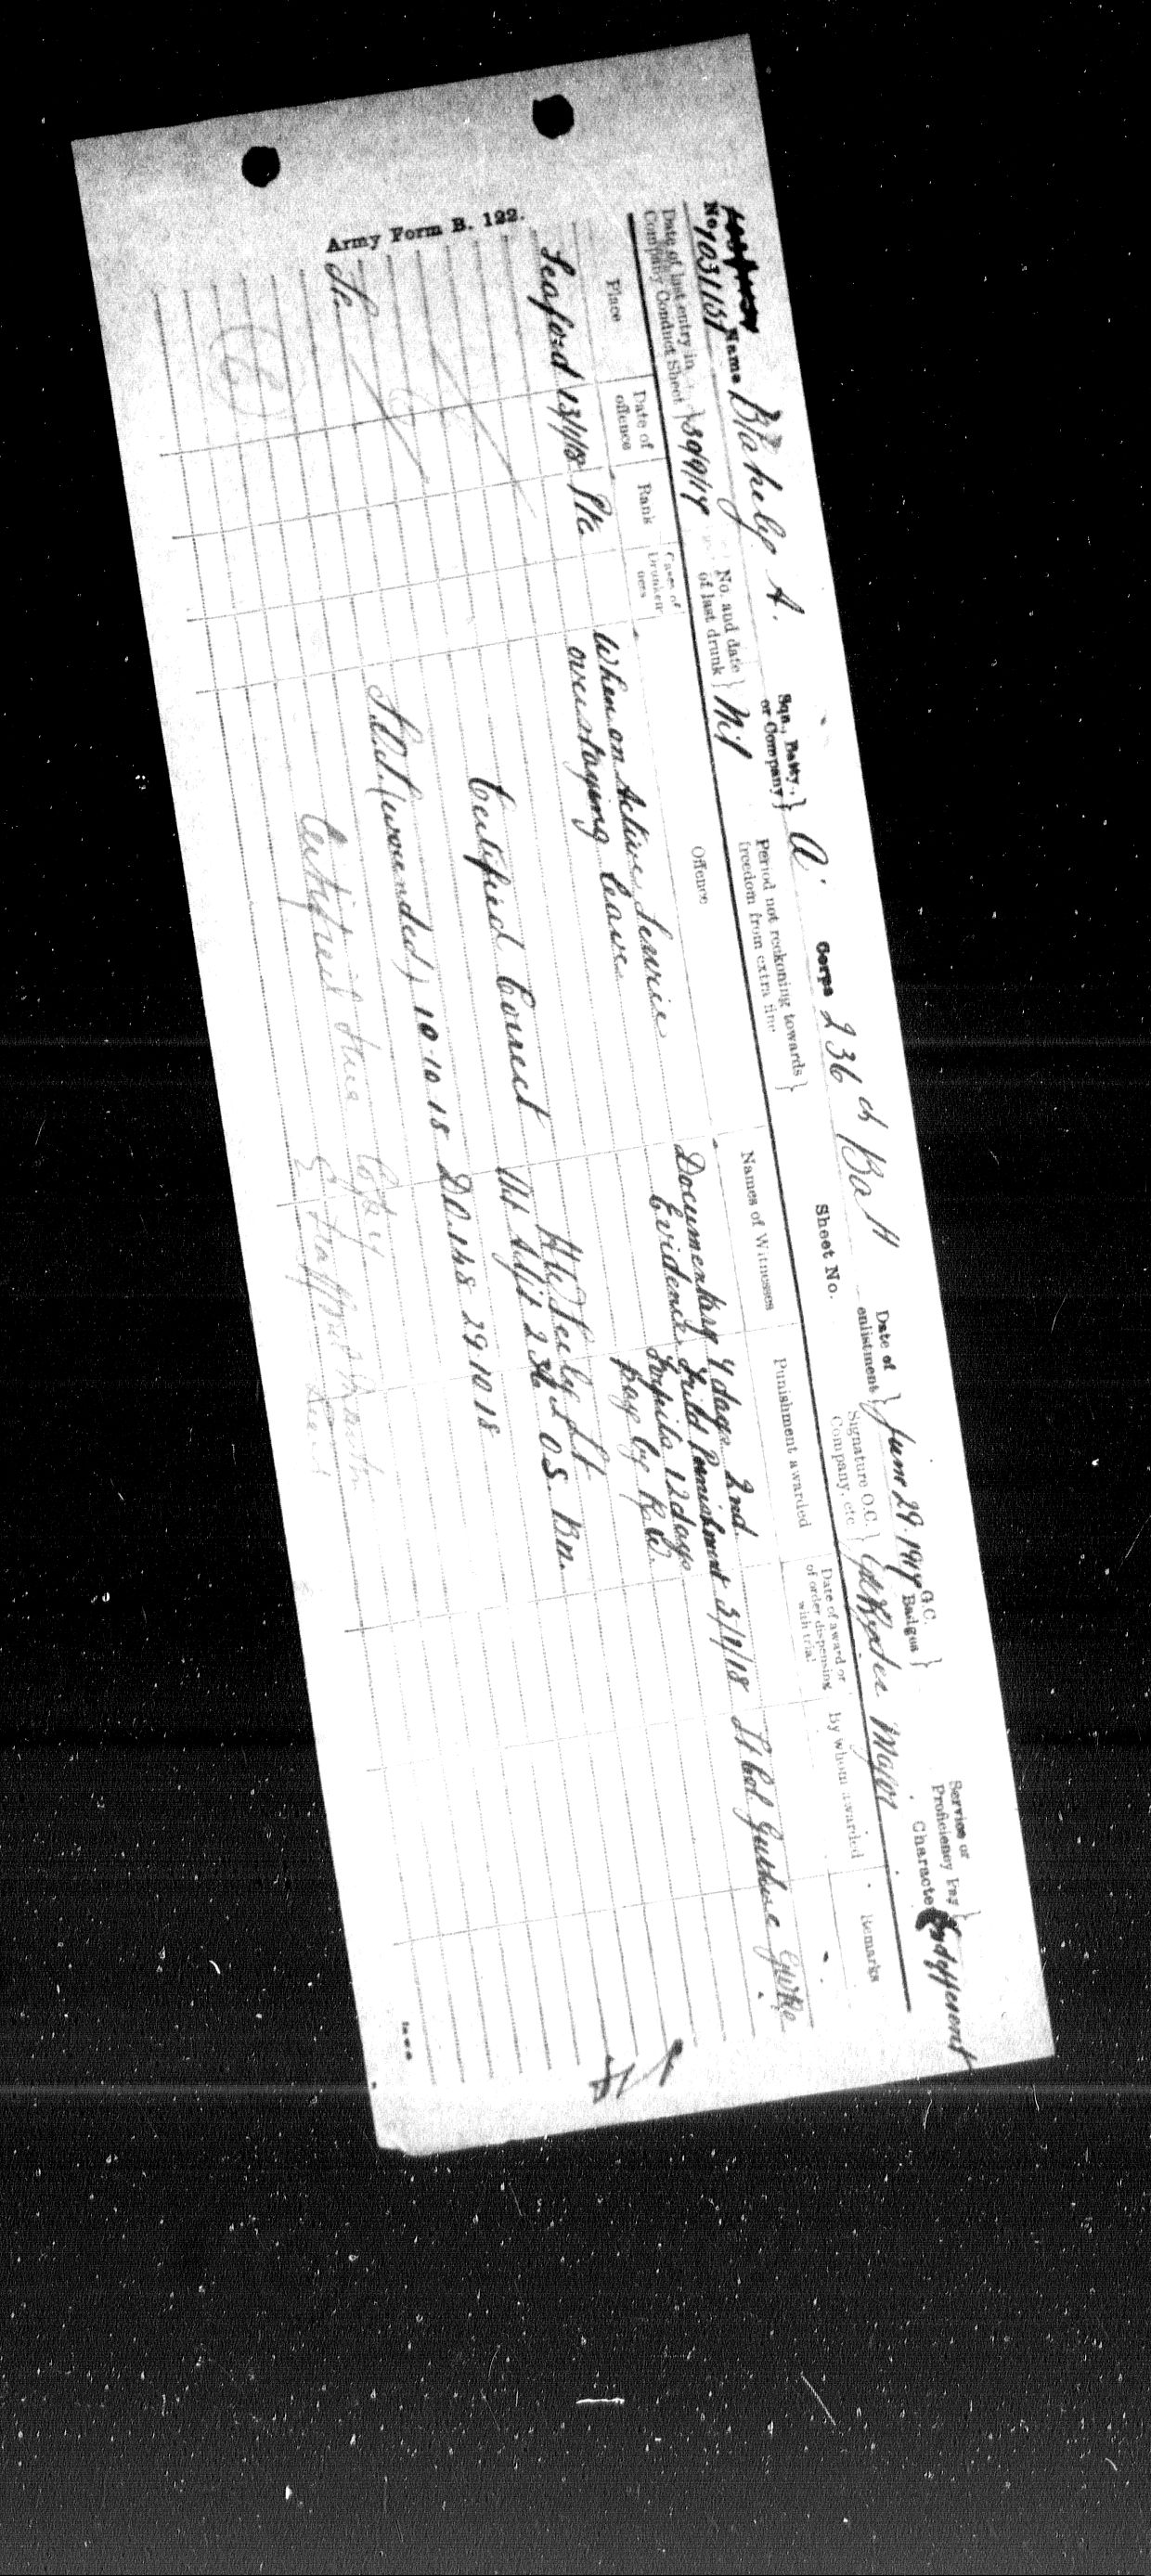 Army Form B. 122.
No. 1031151 Name Blakely A. Sqn., Batty., or Company } A. Corps 236th Batt Date of enlistment } June 29. 1917 G.C. Badges } Service or Proficiency Pay }
Date of last entry in Company Conduct Sheet } No. and date of last drunk } Nil Period not reckoning towards freedom from extra fine } Sheet No. Signature O.C. Company, etc. } Major Character Indifferent
Place Date of offence Rank Cases of Drunkenness Offence Names of Witnesses Punishment awarded Date of award or of order dispensing with trial By whom awarded Remarks
Seaford 13/1/18 Pte. When on Active Service Documentary 4 days 2nd Lt Col Guthrie
overstaying leave Evidence Field Punishment
Forfeits 12 days
pay by R.W.
Certified Correct Lt
Adjt O.S. Bn.
(wounded) 10.10.18 29.10.18
Certified true Copy